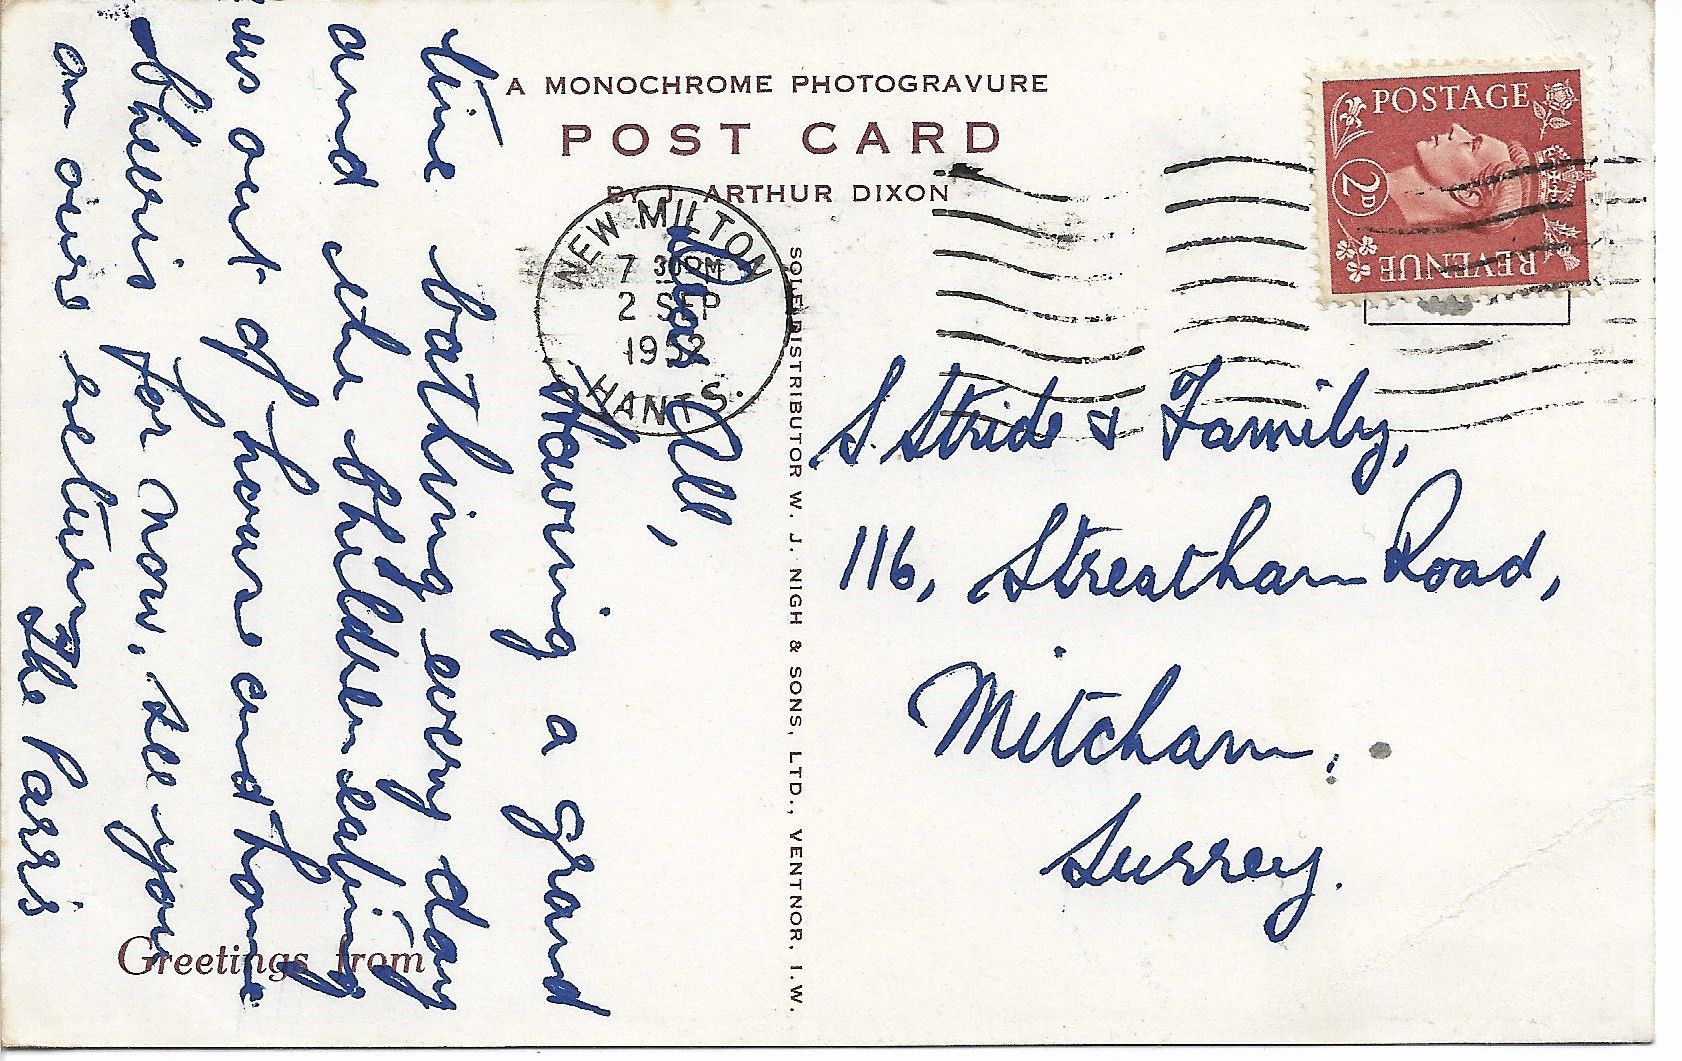 A MONOCHROME PHOTOGRAVURE
POST CARD
BY J. ARTHUR DIXON
NEW MILTON
7 30 PM
2 SEP
1952
HANTS.
POSTAGE
2D
REVENUE
Dear All,
Having a grand
time bathing every day
and the children eating
us out of house and home
Cheerio for now, see you
on our return
The Parr's
S. Stride & Family,
116, Streatham Road,
Mitcham,
Surrey.
SOLE DISTRIBUTOR W. J. NIGH & SONS, LTD., VENTNOR, I.W.
Greetings from